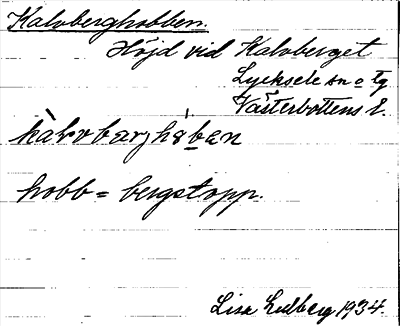 Kalvberghobben.
Höjd vid Kalvberget
Lycksele sn o tg
Västerbottens l.
kàlvbærjhɔ́bɐn
hobb = bergstopp.
Lisa Lidberg 1934.